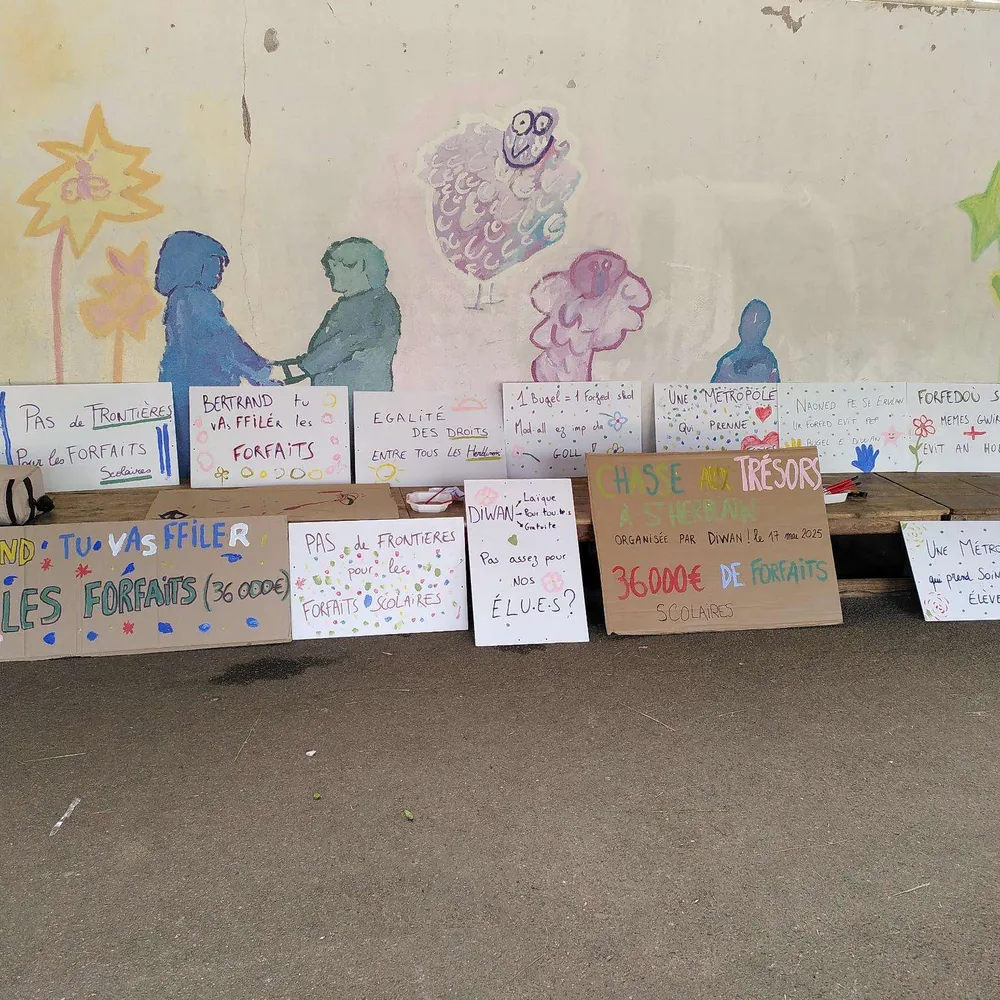 PAS de FRONTIÈRES
Pour les FORFAITS
Scolaires
BERTRAND tu
vAs FFILÉR les
FORFAITS
EGALITÉ
DES DROITS
ENTRE TOUS LES
1 Bugel = 1 Forfed skol
Mod-all ez imp da
GOLL
UNE MÉTROPOLE
QUI PRENNE
NAONED HE ST ERVLAN
UR FORFED EVIT PEP
BUGEL E DIWAN
FORFEDOÙ S
MEMES GWIR
EVIT AN HO
ND TU VAS FFILER
LES FORFAITS (36 000€)
PAS de FRONTIERES
pour les
FORFAITS SCOLAIRES
DIWAN
Laïque
Pour tou.te.s
Gratuite
Pas assez pour
NOS
ÉLU.E.S?
CHASSE AUX TRÉSORS
À ST HERBLAIN
ORGANISÉE PAR DIWAN! le 17 mai 2025
36000€ DE FORFAITS
SCOLAIRES
UNE MÉTRO
qui prend Soin
ÉLEVE